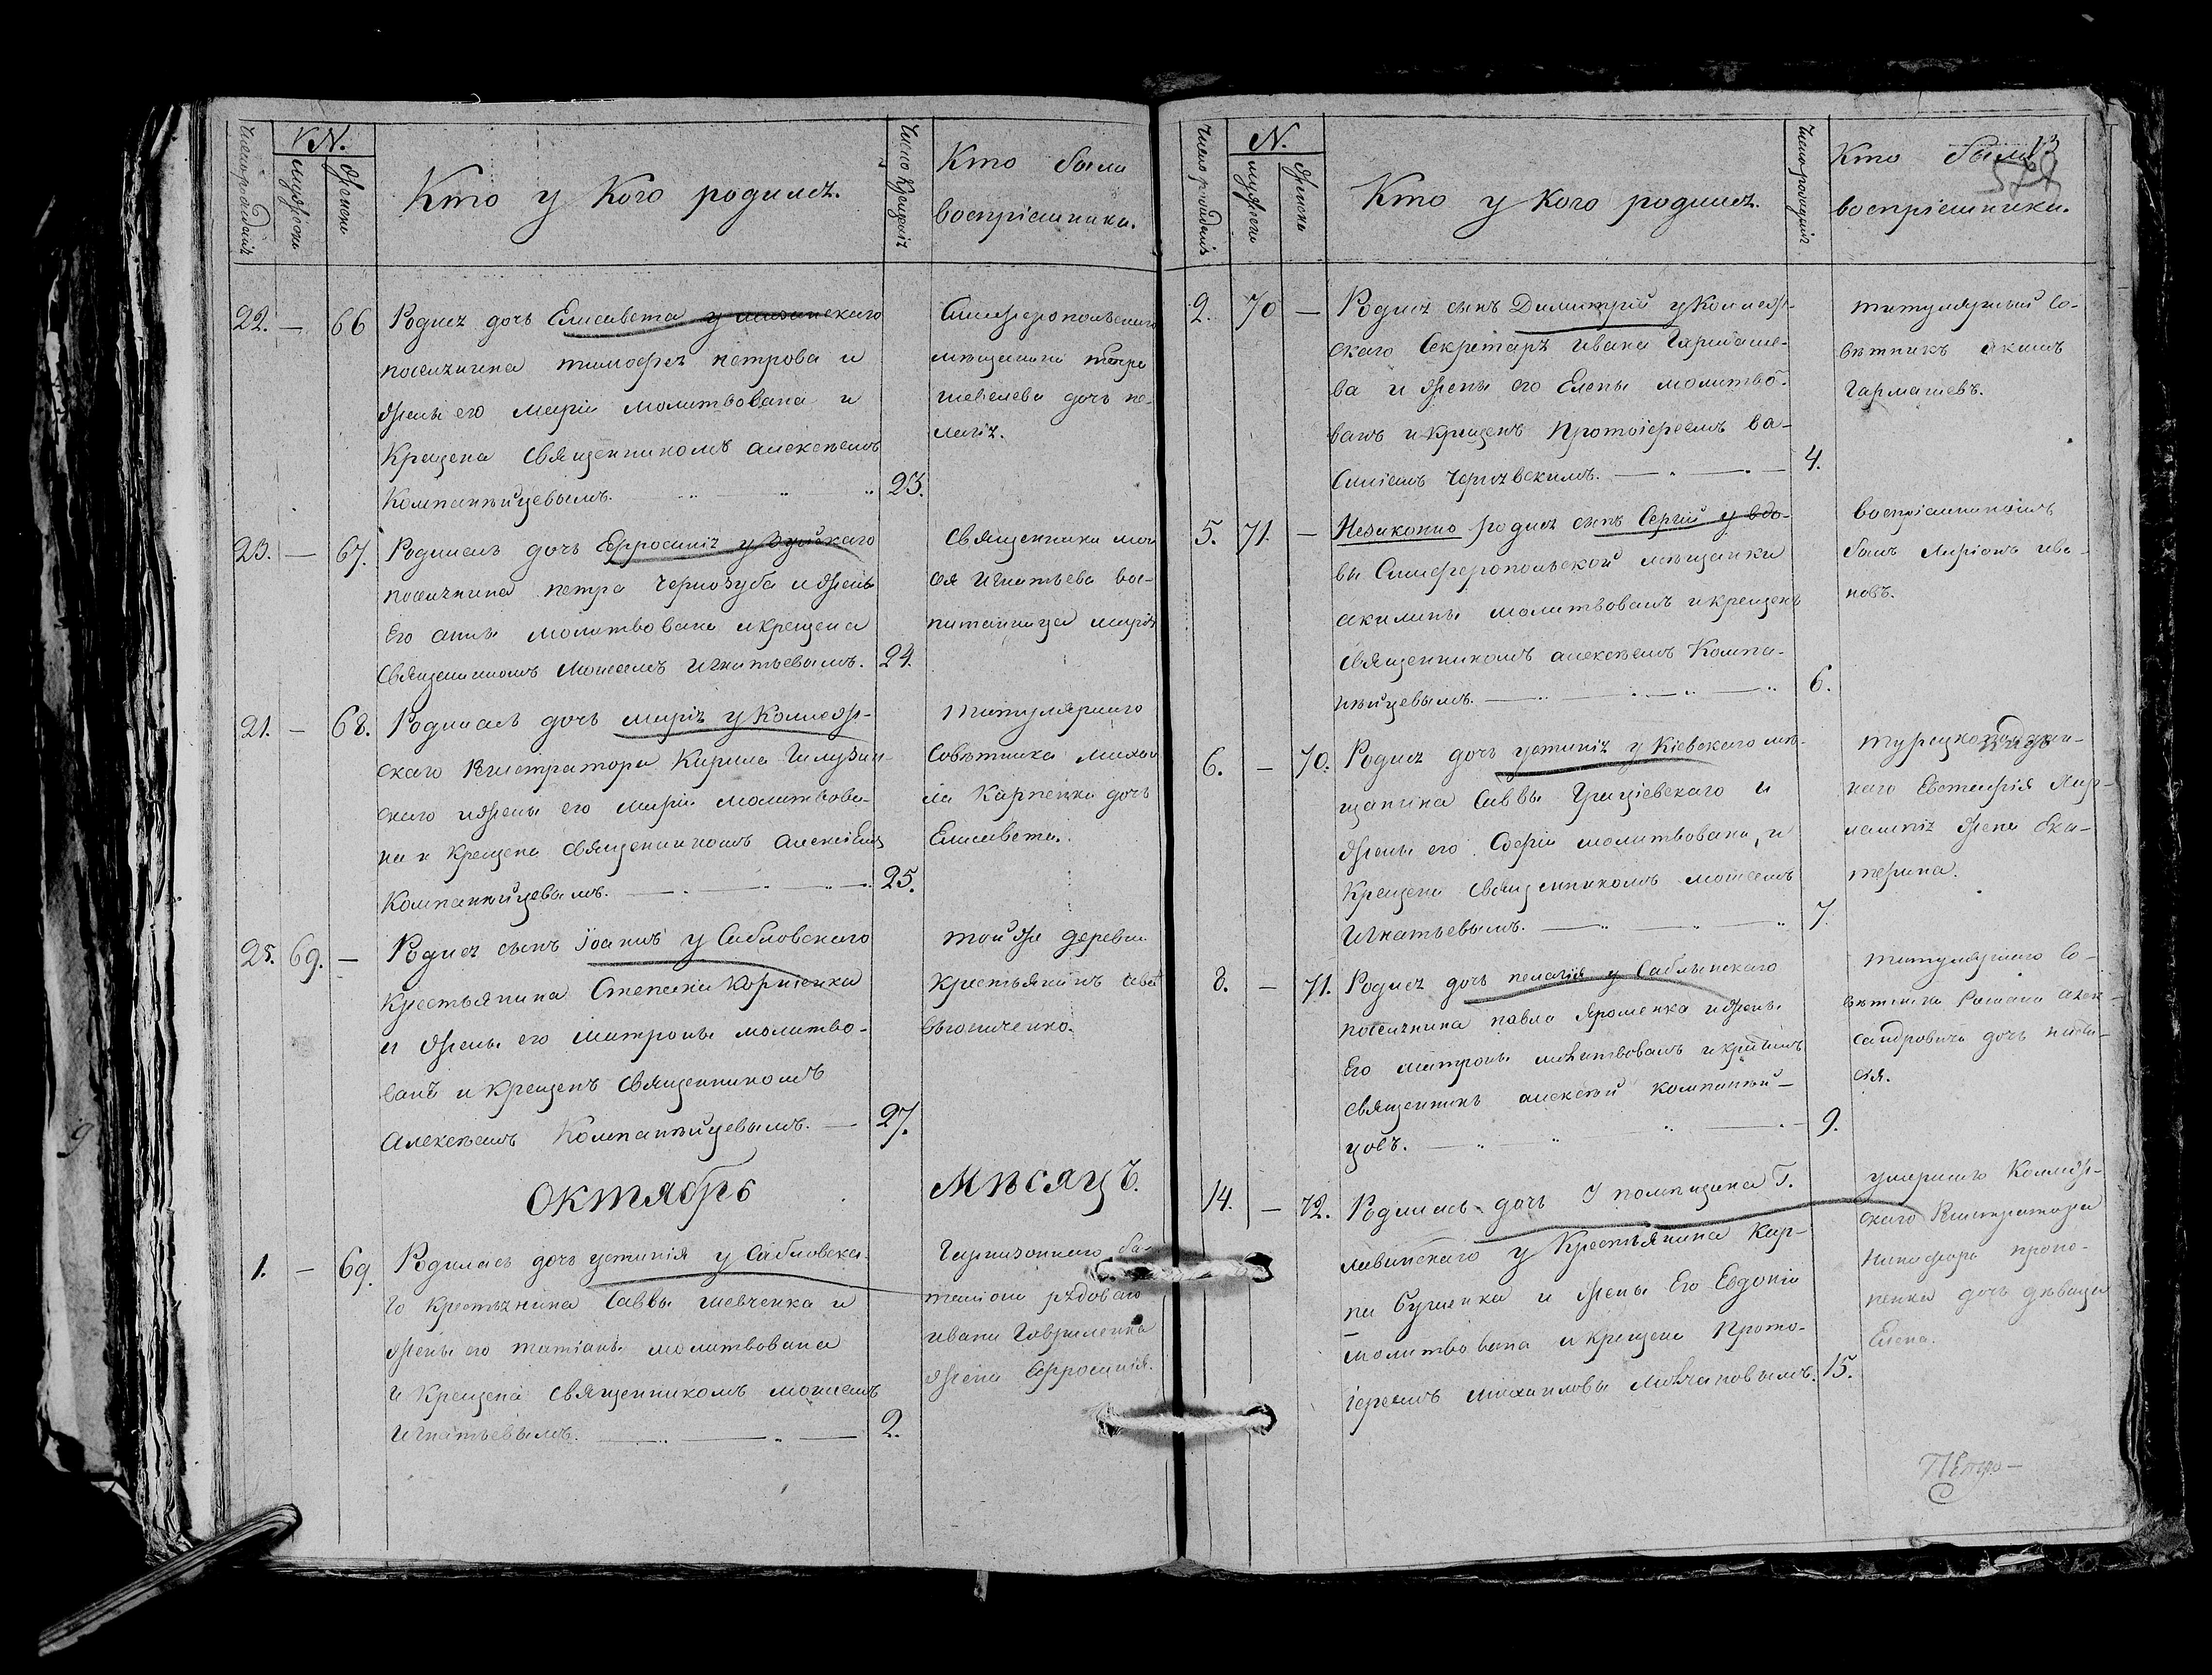 Число рожденія
N.
мужеск
женски
Кто у Кого родился.
Число Крещенія
Кто были
воспріемники.
22. — 66
Родися дочь Елисавета у
поселянина тимофея петрова и
жены его маріи молитвована и
Крещена священникомъ алексеемъ
Компанѣйцевымъ. 23.
Симферопольскаго
мещанина
шевелева дочь пе-
лагія.
23. — 67.
Родилась дочь Ефросинія у Зуйскаго
поселянина петра Чернозуба и жены
Его анны молитвована и крещена
Священникомъ Моисеемъ Игнатьевымъ. 24.
Священника мои
сея Игнатьева вос-
питанница марія
21. — 68.
Родилась дочь марія у Коллеж-
скаго Регистратора Кирила
скаго и жены его маріи молитвова-
на и Крещена священникомъ Алексіемъ
Компанѣйцевымъ. 25.
Титулярнаго
Совѣтника михаи
ла Карпенка дочь
Елисавета.
25. 69. —
Родися сынъ іоаннъ у Сабловскаго
Крестьянина Степана Корніенка
и жены его матроны молитво-
ванъ и крещенъ священникомъ
Алексеемъ Компанѣйцевымъ. — 27.
той же деревни
Крестьянинъ
ОКТЯБРЬ МѢСЯЦЪ.
1. — 69.
Родилась дочь устинія у Сабловска-
го Крестьянина Саввы шевченка и
жены его татіаны молитвована
и Крещена священникомъ моисеемъ
Игнатьевымъ. 2.
Гарнизоннаго ба-
таліона рядоваго
ивана Гавриленка
жена Ефросинія.
Число рожденія
N.
мужеск
женски
Кто у Кого родился.
Число рожденія
Кто были
воспріемники.
13
2. 70 —
Родися сынъ Димитрій у Коллеж-
скаго Секретаря ивана Гармаше-
ва и жены его Елены молитво-
ванъ и Крещенъ Протоіереемъ Ва-
силіемъ Чернявскимъ. 4.
титулярный Со-
вѣтникъ Якимъ
Гармашевъ.
5. 71. —
Незаконно родися сынъ Сергій у вдо-
вы Симферопольской мещанки
акилины молитвованъ и крещенъ
священникомъ алексеемъ Компа-
нѣйцевымъ. 6.
воспріемникомъ
былъ Ларіонъ ива-
новъ.
6. — 70.
Родися дочь устинія у Кіевскаго мѣ-
щанина Саввы Грицієвскаго и
жены его Софіи молитвована, и
Крещена священникомъ моисеемъ
Игнатьевымъ. 7.
наго Евстафія
жена Ека-
терина.
8. — 71.
Родися дочь пелагія у Саблынскаго
поселянина павла Яроменка и жены
Его матроны молитвовалъ и крестилъ
священникъ алексѣй компанѣй-
цовъ. 9.
титулярнаго Со-
вѣтника Романа алек-
сандровича дочь наста-
сія.
14. — 72.
Родилась дочь У помѣщика Г.
лавинскаго у Крестьянина Кар-
па Сушенка и жены Его Евдокіи
молитвована и крещена Прото-
іереемъ михаиломъ Молчановымъ. 15.
умершаго Коллеж-
скаго Регистратора
Никифора проко-
пенка дочь дѣвица
Елена.